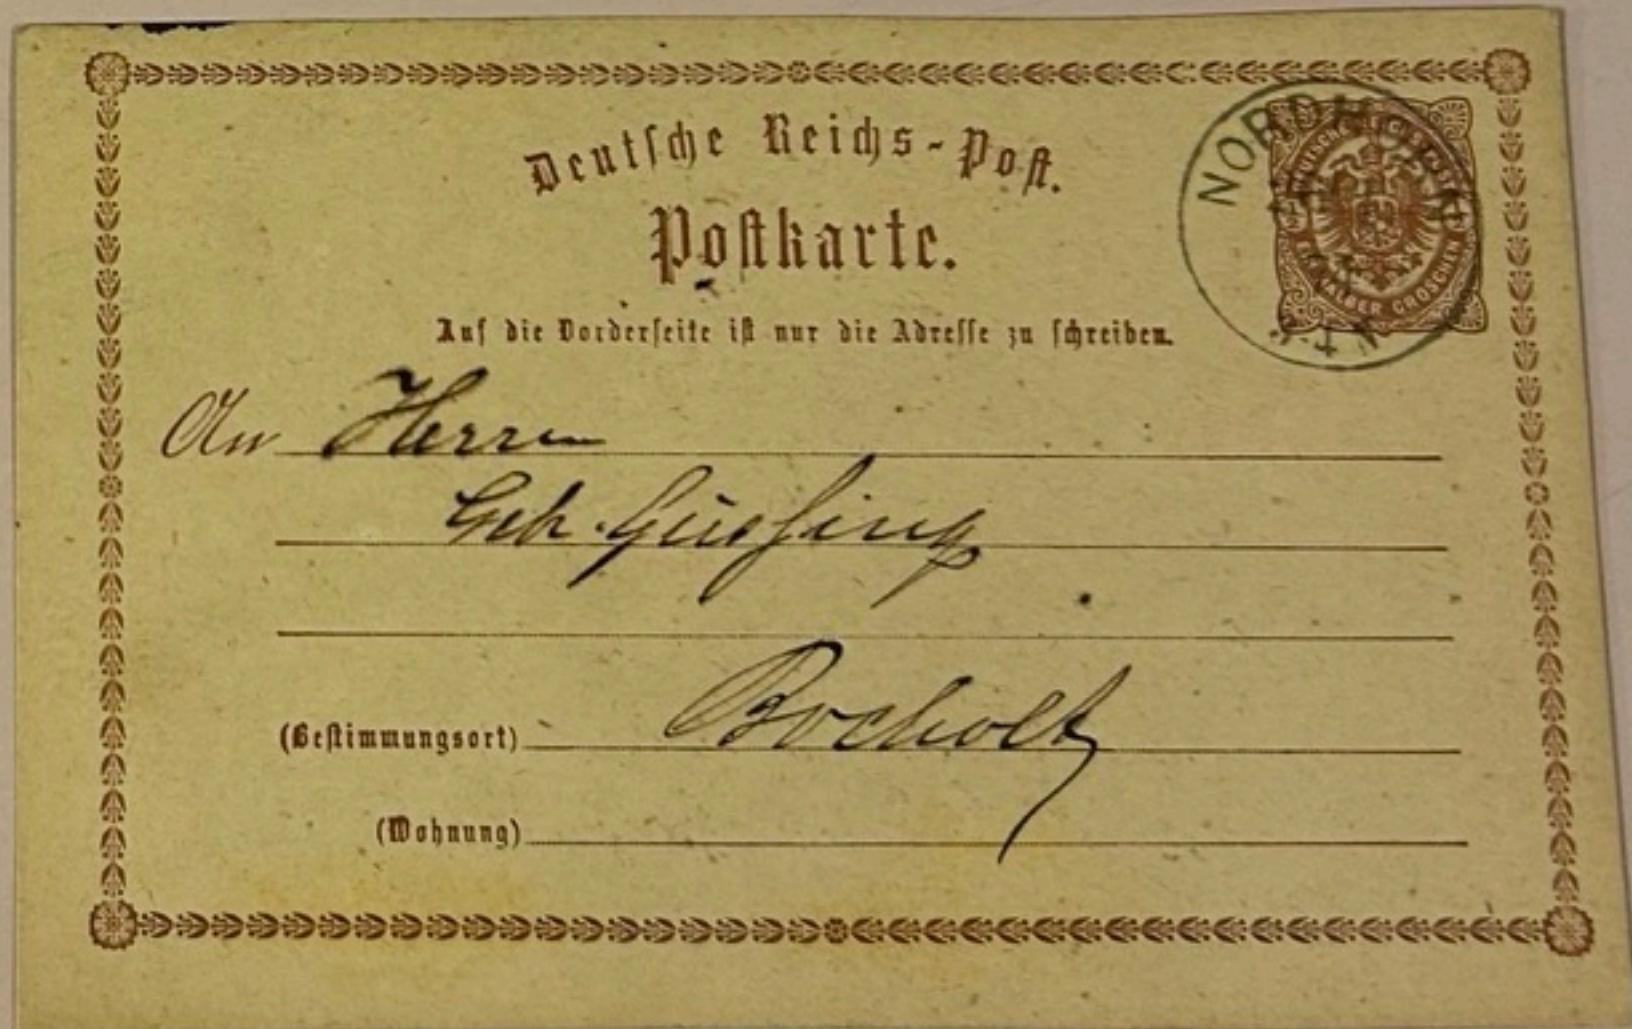 Deutsche Reichs-Post.
Postkarte.
Auf die Vorderseite ist nur die Adresse zu schreiben.
DEUTSCHE REICHS-POST
EIN HALBER GROSCHEN
An Herrn
Geb.
(Bestimmungsort) Bocholt
(Wohnung)